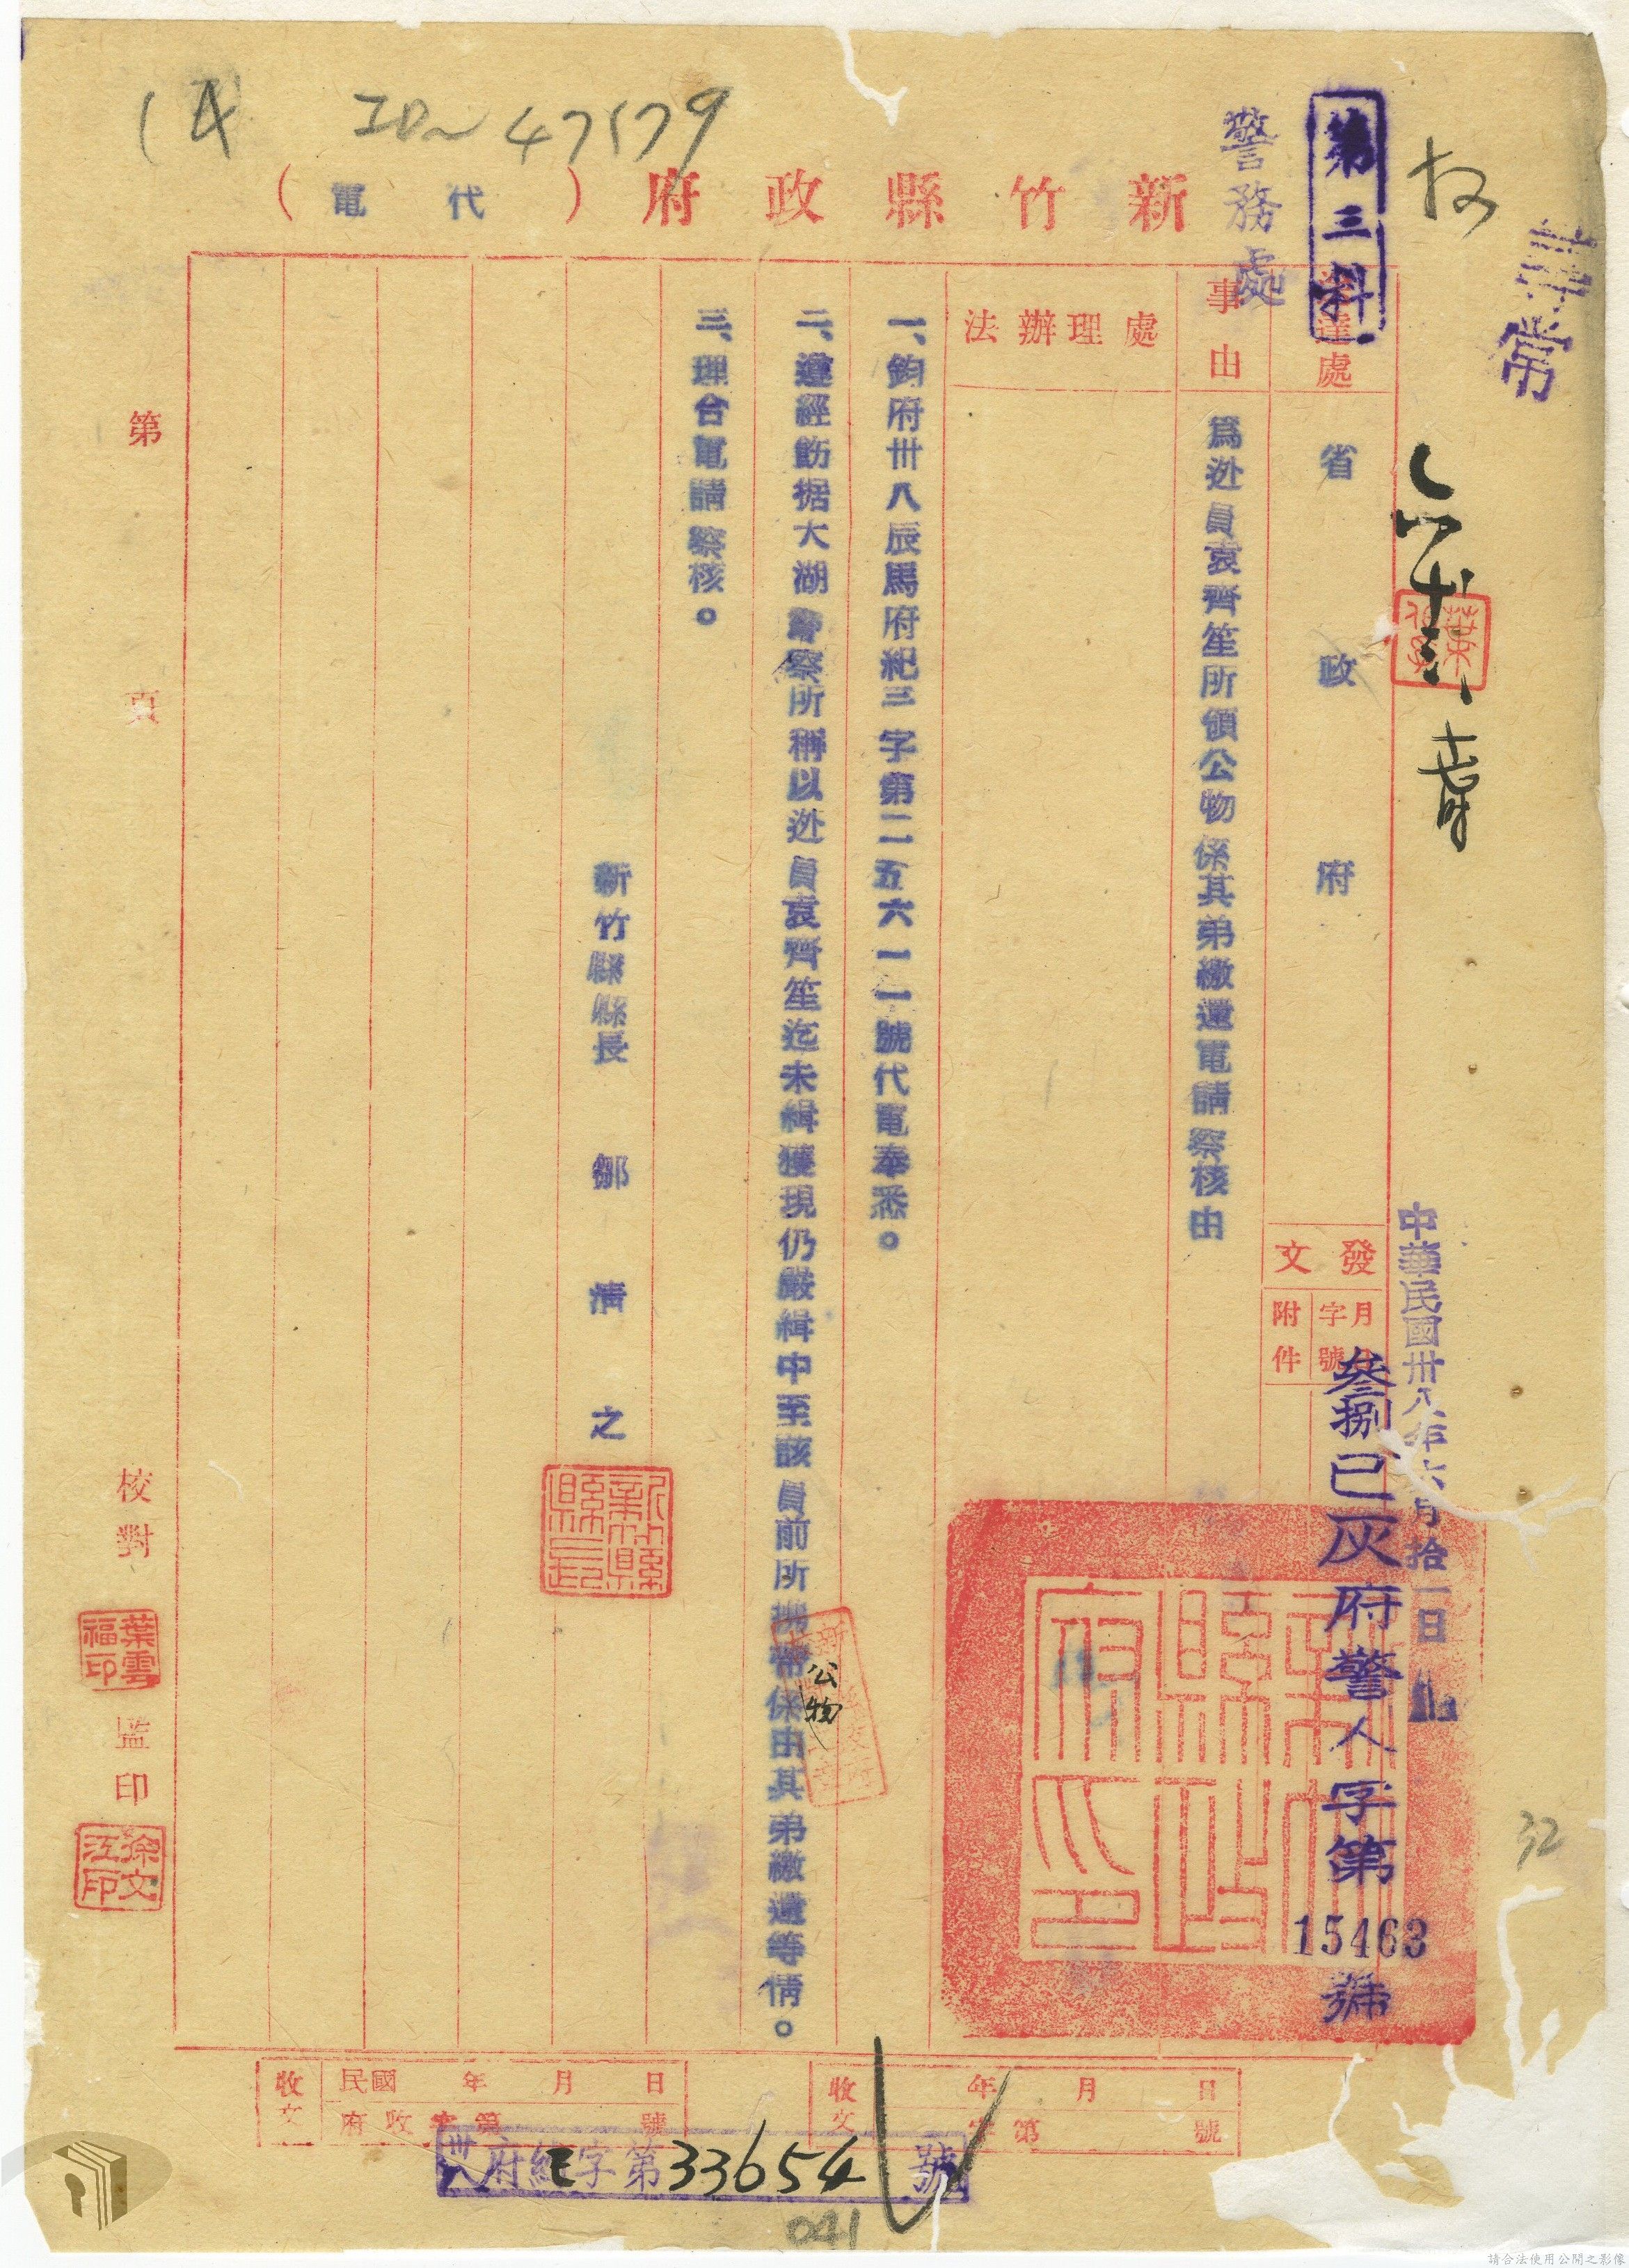 新竹縣政府（代電）
第三科
警務處
送達處
省政府
中華民國卅八年六月拾一日
發文
月日
字號
附件
叁捌巳灰府警人字第15463號
事由
為迯員袁齊笙所領公物係其弟繳還電請 察核由
處理辦法
一、鈞府卅八辰馬府紀三字第二五六一一號代電奉悉。
二、遵經飭据大湖警察所稱以迯員袁齊笙迄未緝獲現仍嚴緝中至該員前所携帶公物係由其弟繳還等情。
三、理合電請 察核。
新竹縣縣長 鄒清之
新竹縣縣長
新竹縣政府印
第 頁
校對
葉雲福印
監印
徐文江印
收文
年 月 日
字第 號
收文
民國 年 月 日
府收字第 號
卅八府紀三字第33654號
041
32
ID~47579
請合法使用公開之影像